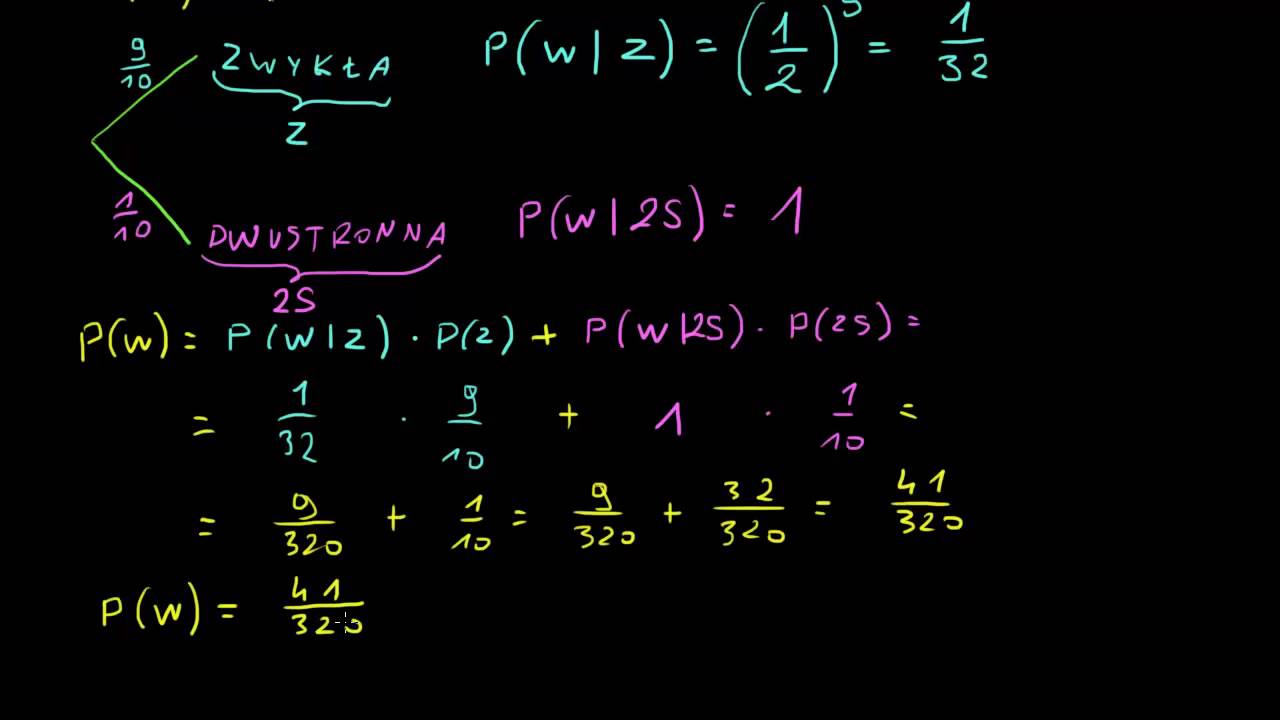 9/10 ZWYKŁA P(W|Z) = (1/2)^5 = 1/32
Z
1/10 DWUSTRONNA P(W|2S) = 1
2S
P(W) = P(W|Z) · P(Z) + P(W|2S) · P(2S) =
= 1/32 · 9/10 + 1 · 1/10 =
= 9/320 + 1/10 = 9/320 + 32/320 = 41/320
P(W) = 41/320